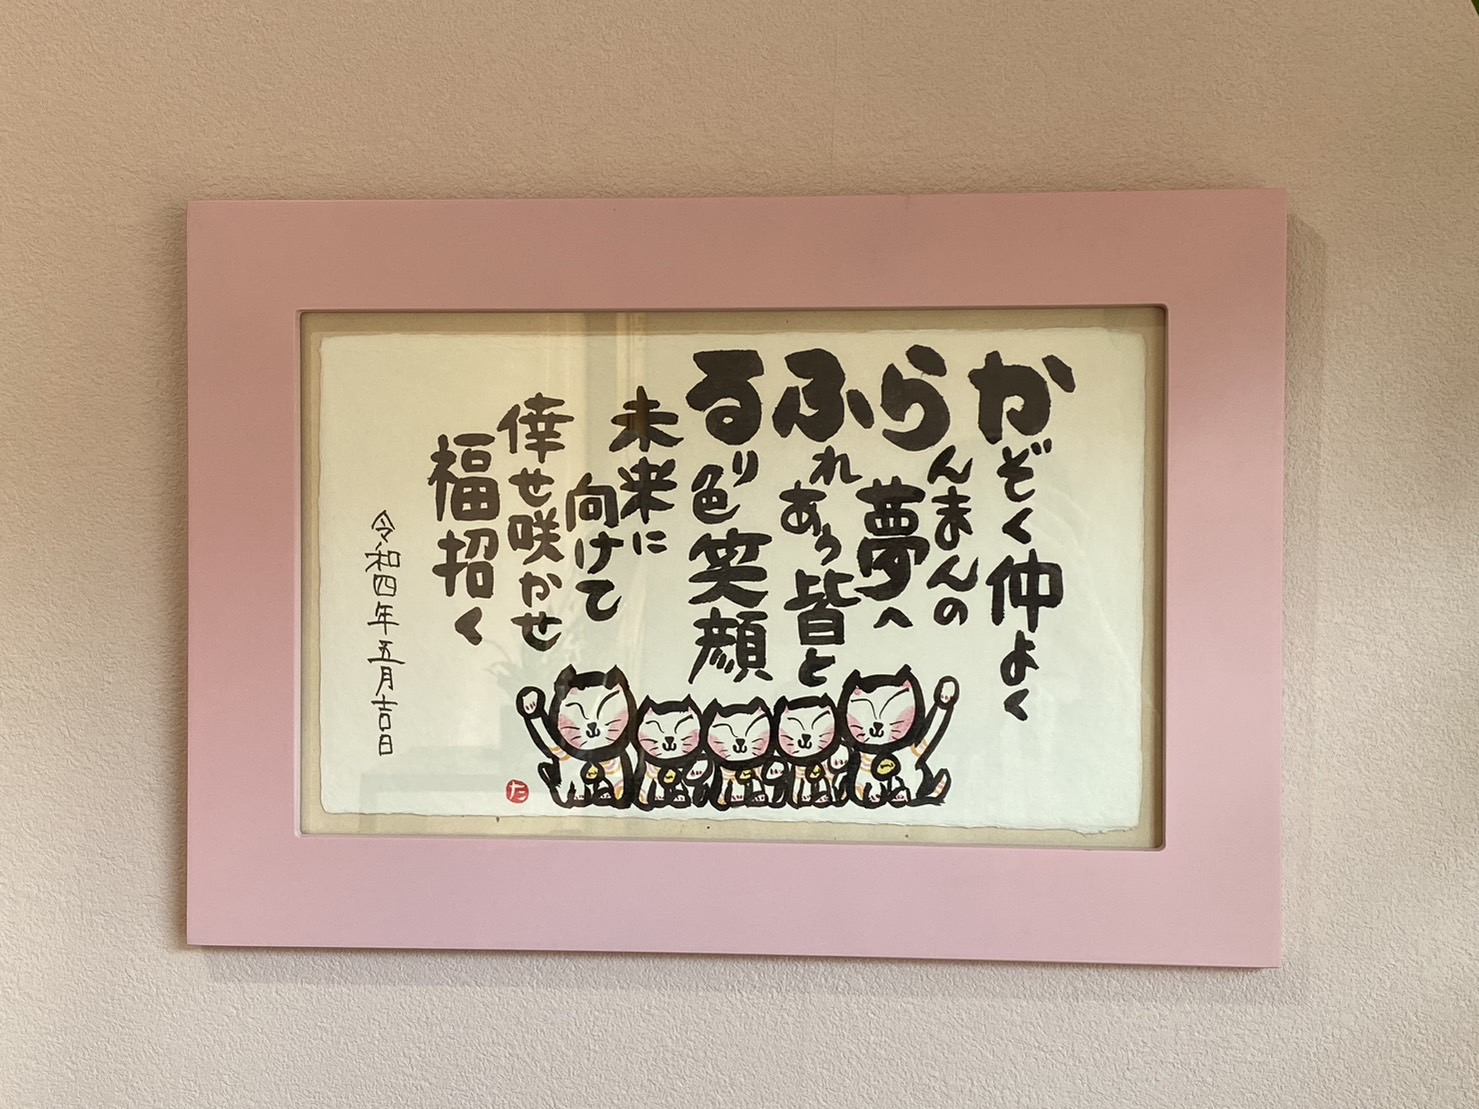 かぞく仲よく
らんまんの
夢へ
ふれあう皆と
るり色笑顔
未来に
向けて
倖せ咲かせ
福招く
令和四年五月吉日
た